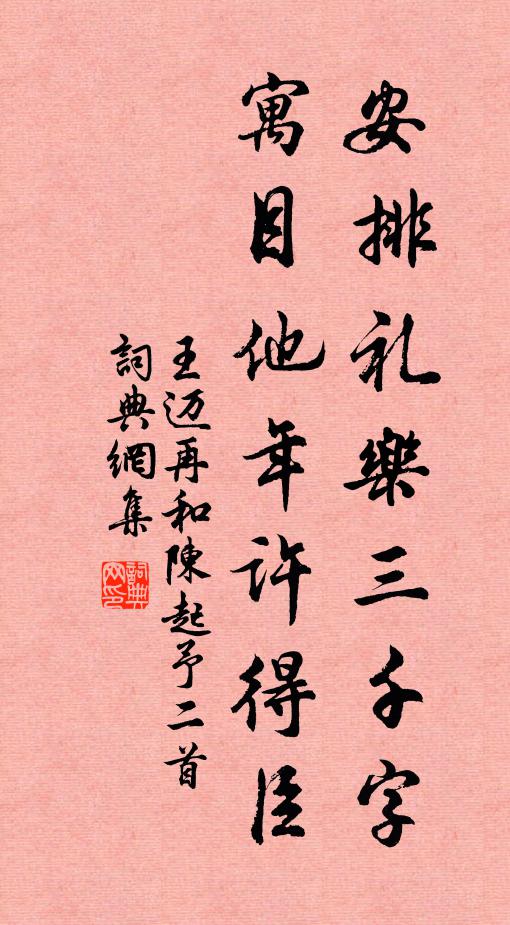 安排礼樂三千字
寓目他年许得臣
王迈再和陳起予二首
詞典網集
詞典网印